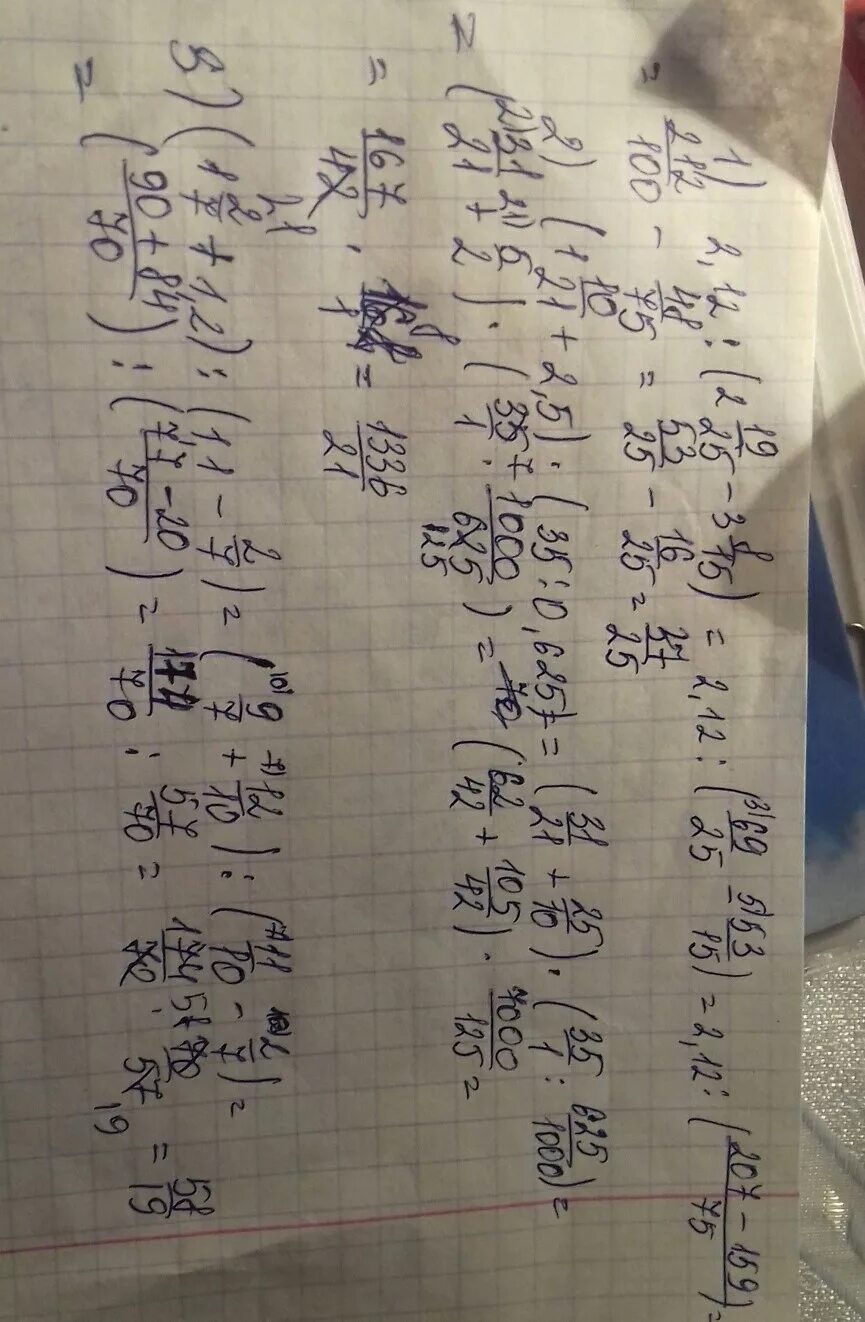 1) 2,12 : (2 19/25 - 3 8/15) = 2,12 : (3) 69/25 - 5) 53/15) = 2,12 : ((207 - 159)/75) =
= 212/100 - 48/75 = 53/25 - 16/25 = 37/25
2) (1 10/21 + 2,5) · (35 : 0,625) = (31/21 + 25/10) · (35/1 : 625/1000) =
= (2) 31/21 + 21) 5/2) · (35/1 · 1000/625 125) = (62/42 + 105/42) · 7000/125 =
= 167/42 · 8/1 = 1336/21
3) (1 2/7 + 1,2) : (1,1 - 2/7) = (10) 9/7 + 7) 12/10) : (7) 11/10 - 10) 2/7) =
= ((90 + 84)/70) : ((77 - 20)/70) = 174/70 : 57/70 = 174 58/70 · 70/57 19 = 58/19